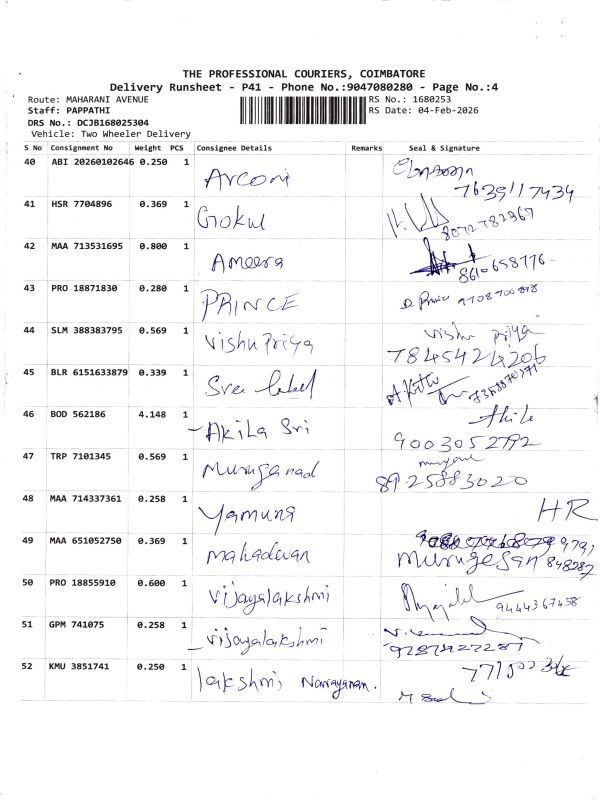 THE PROFESSIONAL COURIERS, COIMBATORE
Delivery Runsheet - P41 - Phone No.:9047080280 - Page No.:4
Route: MAHARANI AVENUE RS No.: 1680253
Staff: PAPPATHI RS Date: 04-Feb-2026
DRS No.: DCJB168025304
Vehicle: Two Wheeler Delivery
S No Consignment No Weight PCS Consignee Details Remarks Seal & Signature
40 ABI 20260102646 0.250 1
7639117434
41 HSR 7704896 0.369 1 Gokul
8072782367
42 MAA 713531695 0.800 1 Ameera
8610658776
43 PRO 18871830 0.280 1 PRINCE
44 SLM 388383795 0.569 1 Vishnu Priya Vishnu Priya
7845424206
45 BLR 6151633879 0.339 1 Sree label
46 BOD 562186 4.148 1 Akila Sri
9003052792
47 TRP 7101345 0.569 1 Muruganad
8925883020
48 MAA 714337361 0.258 1 Yamuna HR
49 MAA 651052750 0.369 1 Mahadevan
Murugesan
50 PRO 18855910 0.600 1 Vijayalakshmi
9444367458
51 GPM 741075 0.258 1 Vijayalakshmi
52 KMU 3851741 0.250 1 lakshmi Narayanan.